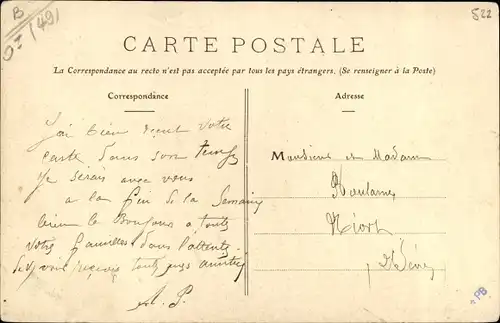 B
522
CARTE POSTALE
La Correspondance au recto n'est pas acceptée par tous les pays étrangers. (Se renseigner à la Poste)
Correspondance
Adresse
J'ai bien votre
carte dans son temps
je serais avec vous
a la fin de la Semaine
bien le Bonjour a toute
votre famille dans l'attente
toutes mes amitiés
A. P.
Monsieur et Madame
Niort
PB